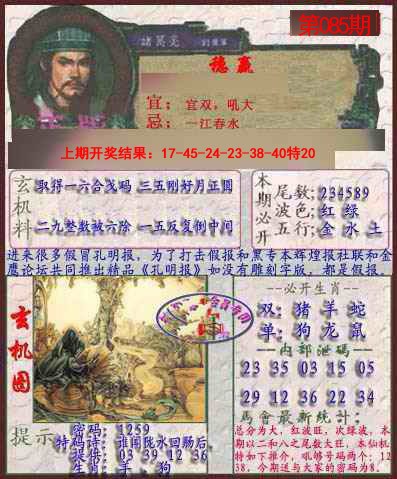 第085期
諸葛亮
稳赢
宜：宜双，吼大
忌：一江春水
上期开奖结果：17-45-24-23-38-40特20
玄机料
取得一六合戈码 三五刚好月正圆
二九整数被六除 一五反复倒中间
本期必开
尾数:234589
波色:红 绿
五行:金 水 土
进来很多假冒孔明报，为了打击假报和黑专本辉煌报社联和金
鹰论坛共同推出精品《孔明报》如没有雕刻字版，都是假报。
玄机图
--必开生肖--
双:猪羊蛇
单:狗龙鼠
--内部泄码--
23 35 03 15 05
29 12 36 22 34
馬會最新統計:
总分为大，红波旺，次绿波，本
期以二和八之尾数大旺，本仙机
特如下推介，吼够号码两个：12
38，今期送与大家的密码为8。
提示
密码：1259
特码诗：谁闻陇水回肠后，
提供：03 39 12 36
生肖：羊，狗